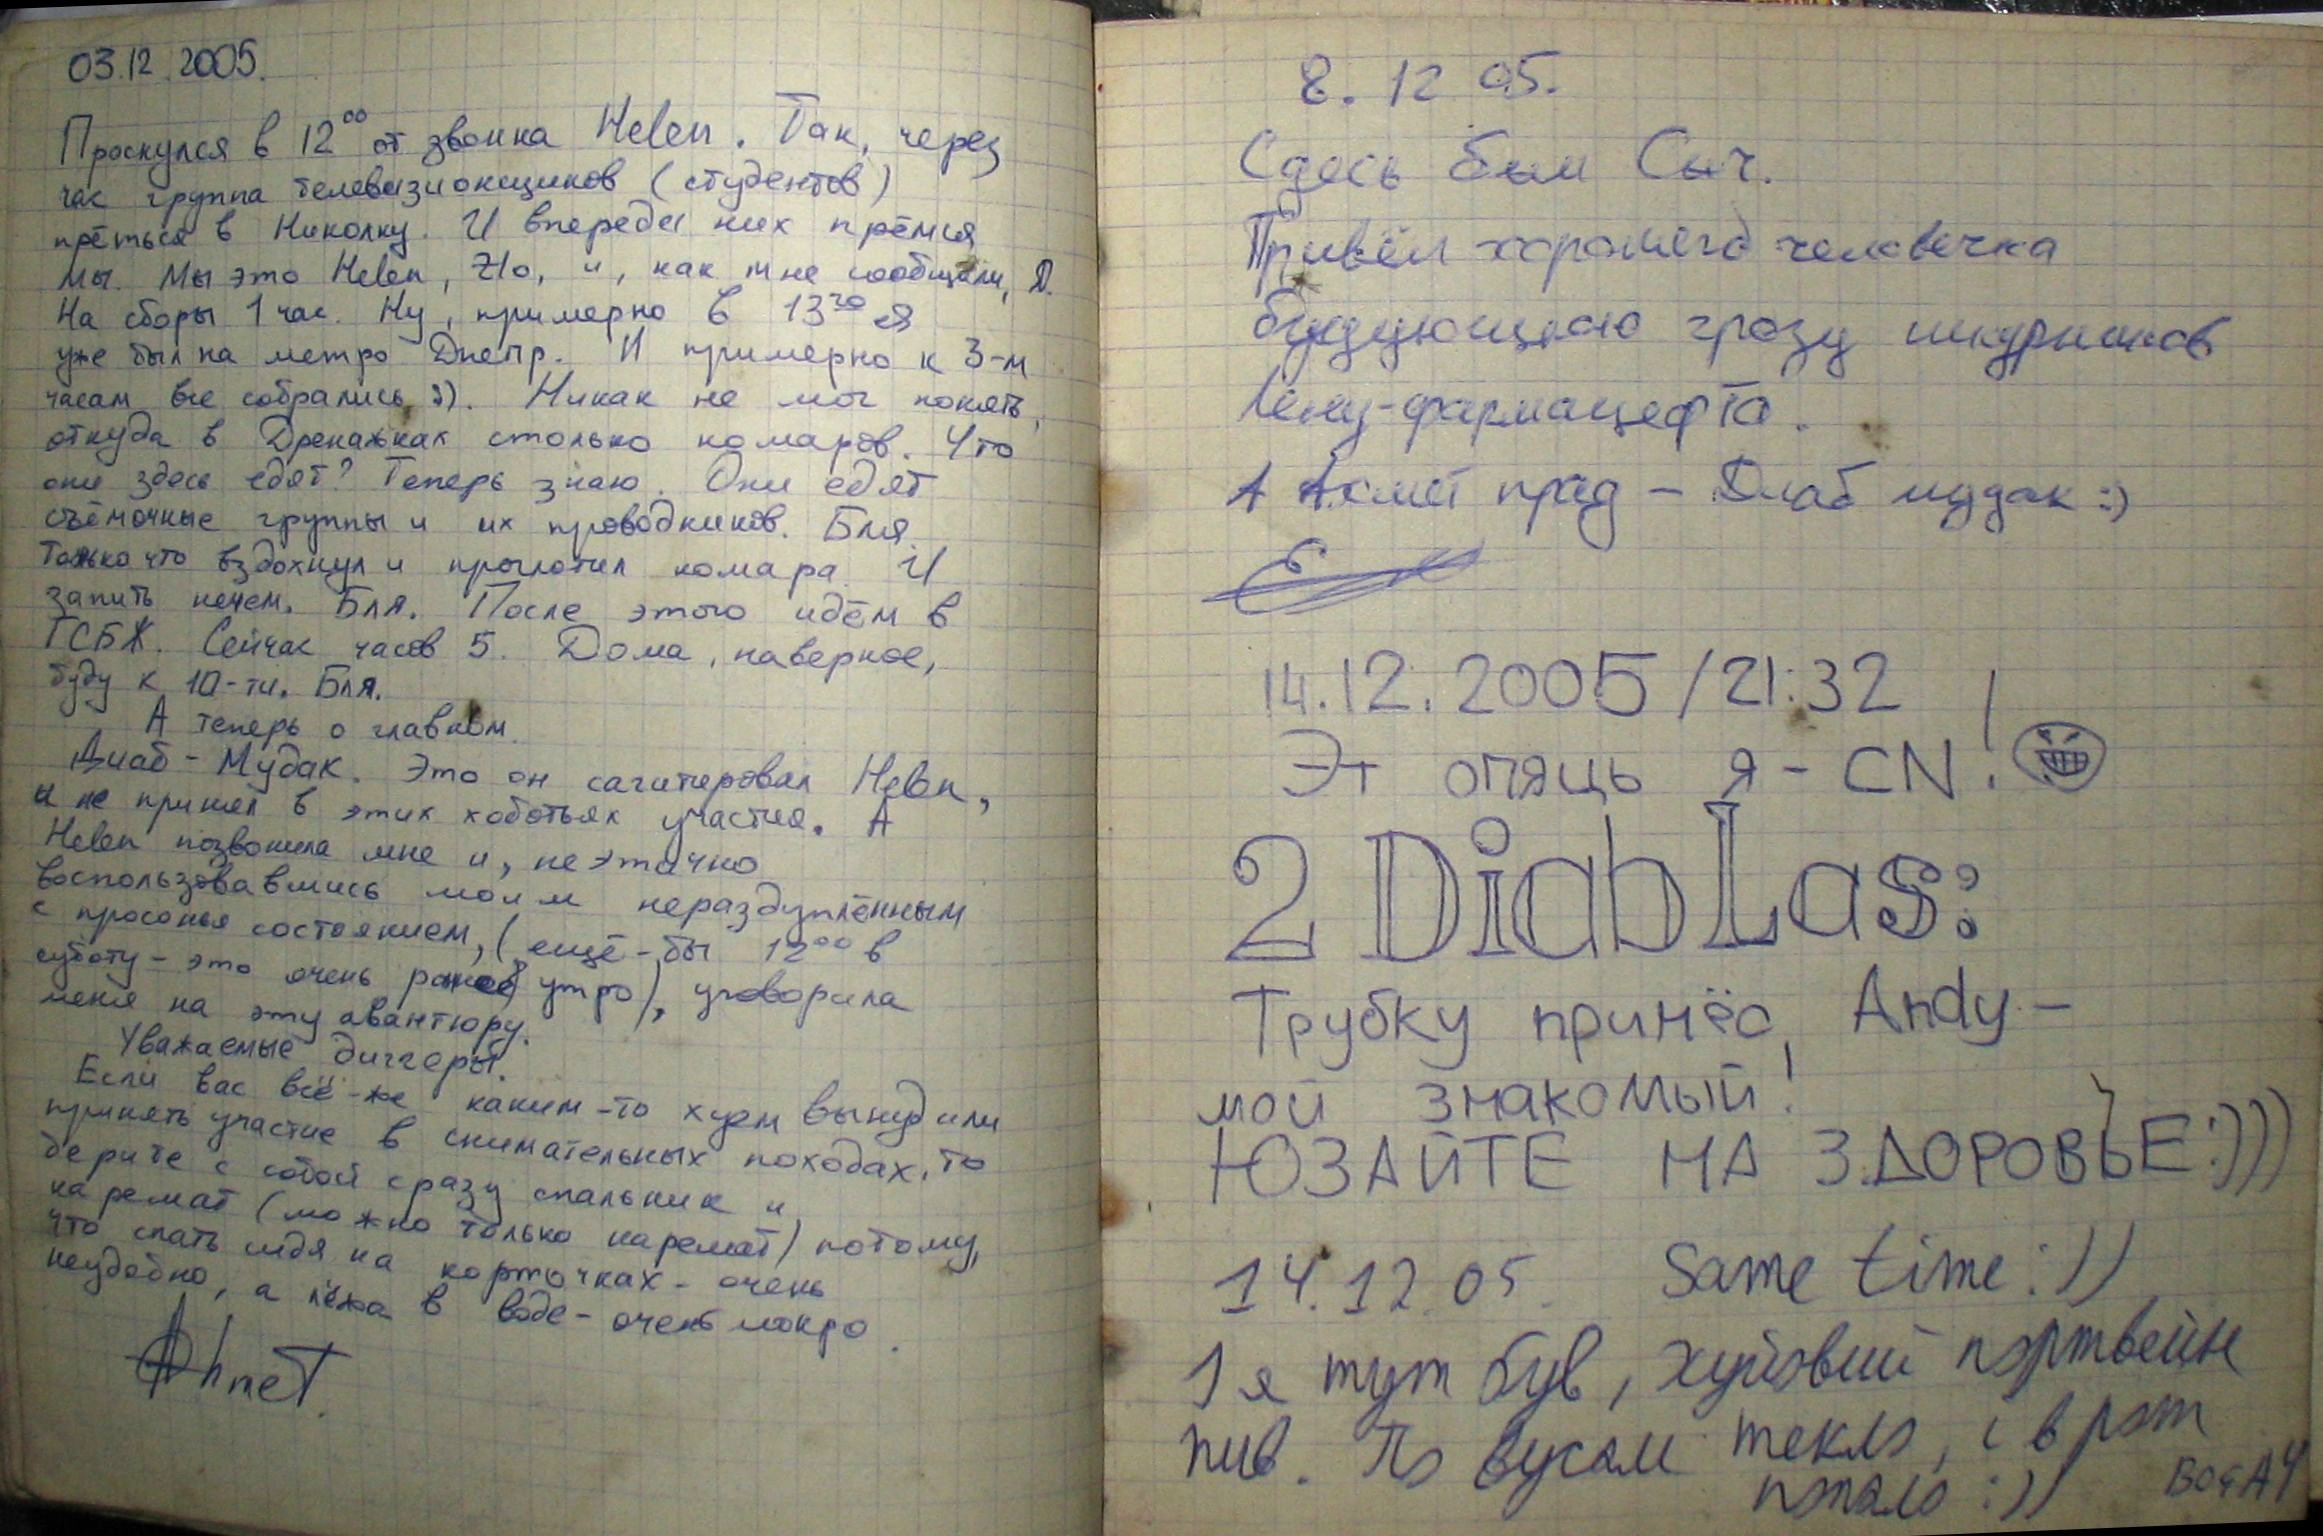 03.12.2005.
Проснулся в 12⁰⁰ от звонка Helen. Так, через
час группа телевизионщиков (студентов)
прёться в Николку. И впереди них прёмся
мы. Мы это Helen, и, как мне сообщили, Я.
На сборы 1 час. Ну, примерно в 13²⁰ я
уже был на метро Днепр. И примерно к 3-м
часам все собрались :). Никак не мог понять,
откуда в Дренажках столько комаров. Что
они здесь едят? Теперь знаю. Они едят
съёмочные группы и их проводников. Бля.
Только что вздохнул и проглотил комара. И
запить нечем. Бля. После этого идём в
ГСБЖ. Сейчас часов 5. Дома, наверное,
буду к 10-ти. Бля.
А теперь о главном.
Диаб - Мудак. Это он сагитировал Helen,
и не пришел в этих хоботьях участия. А
Helen позвонила мне и, не этично
воспользовавшись моим нераздуплённым
с просонья состоянием, (ещё-бы 12⁰⁰ в
суботу - это очень раннее утро), уговорила
меня на эту авантюру.
Уважаемые диггеры.
Если вас всё-же каким-то хуем вынудили
принять участие в снимательных походах, то
берите с собой сразу спальник и
каремат (можно только каремат) потому,
что спать сидя на корточках - очень
неудобно, а лёжа в воде - очень мокро.
Ahmet.
8.12 05.
Сдесь был Сыч.
Привёл хорошего человечка
будующею грозу шкурников
Лену-фармацефта.
А Ахмет прад - Диаб мудак :)
14.12.2005/21:32
Эт опяць я - CN!
2 DiabLas:
Трубку принёс Andy -
мой знакомый!
ЮЗАЙТЕ НА ЗДОРОВЪЕ:)))
14.12.05. Same time :))
І я тут був, хуйовий портвейн
пив. По вусам текло, і в рот
попало :))